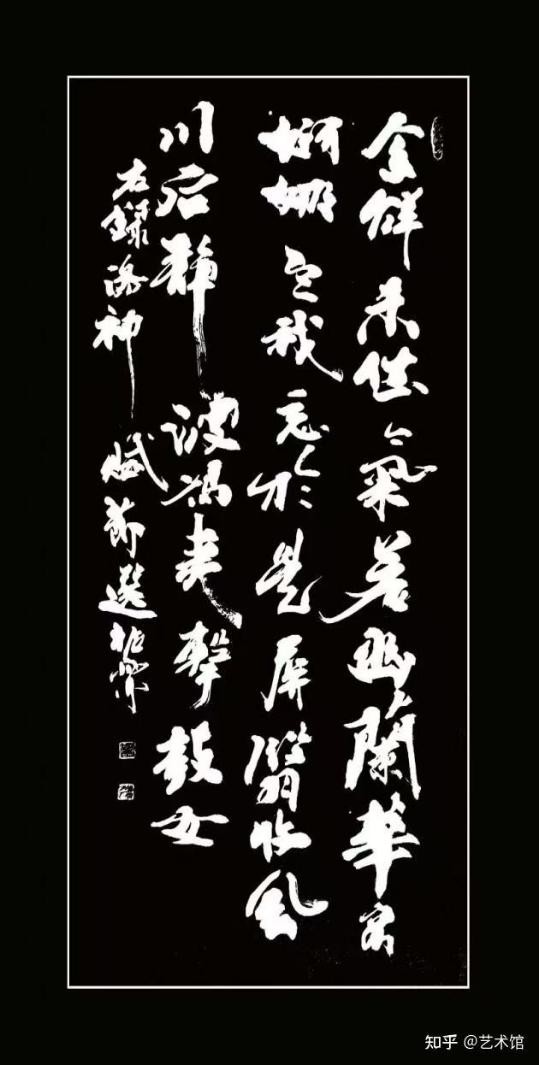 含辭未吐氣若幽蘭華容
婀娜令我忘於是屏翳收風
川后靜波馮夷擊鼓女
右錄洛神賦節選
知乎 @艺术馆